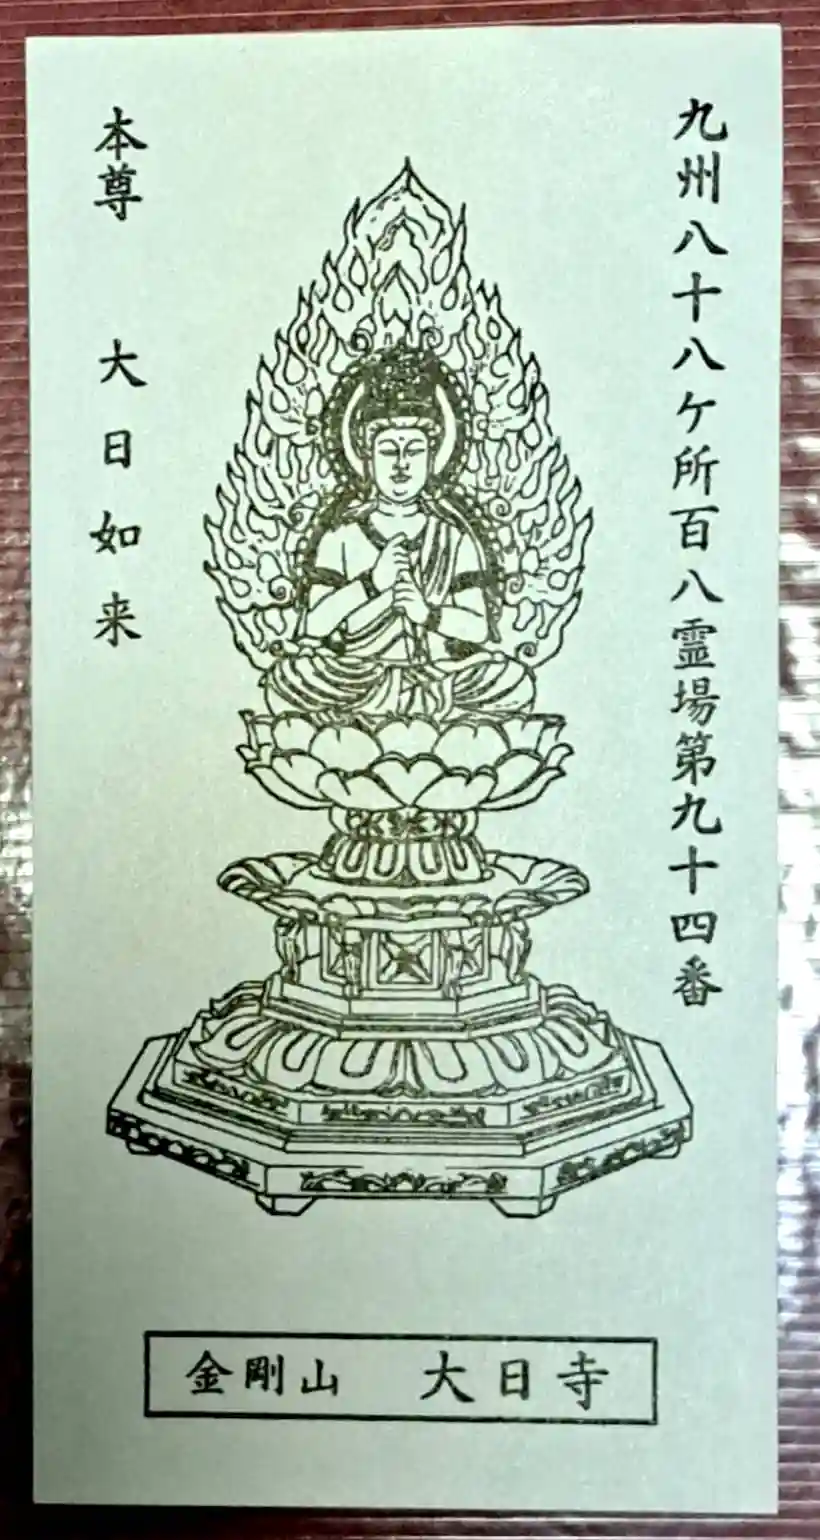 九州八十八ケ所百八霊場第九十四番
本尊　大日如来
金剛山　大日寺